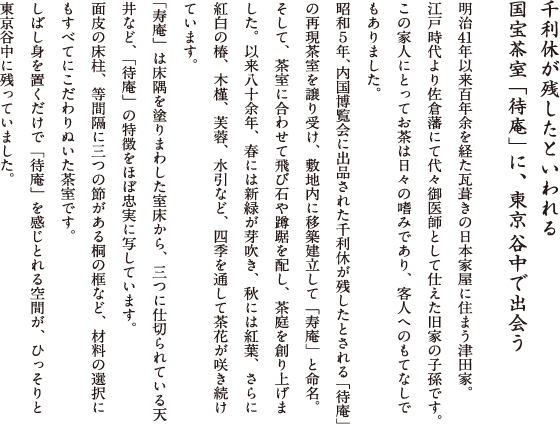 千利休が残したといわれる
国宝茶室「待庵」に、東京谷中で出会う
明治41年以来百年余を経た瓦葺きの日本家屋に住まう津田家。
江戸時代より佐倉藩にて代々御医師として仕えた旧家の子孫です。
この家人にとってお茶は日々の嗜みであり、客人へのもてなしで
もありました。
昭和５年、内国博覧会に出品された千利休が残したとされる「待庵」
の再現茶室を譲り受け、敷地内に移築建立して「寿庵」と命名。
そして、茶室に合わせて飛び石や蹲踞を配し、茶庭を創り上げま
した。以来八十余年、春には新緑が芽吹き、秋には紅葉、さらに
紅白の椿、木槿、芙蓉、水引など、四季を通して茶花が咲き続け
ています。
「寿庵」は床隅を塗りまわした室床から、三つに仕切られている天
井など、「待庵」の特徴をほぼ忠実に写しています。
面皮の床柱、等間隔に三つの節がある桐の框など、材料の選択に
もすべてにこだわりぬいた茶室です。
しばし身を置くだけで「待庵」を感じとれる空間が、ひっそりと
東京谷中に残っていました。